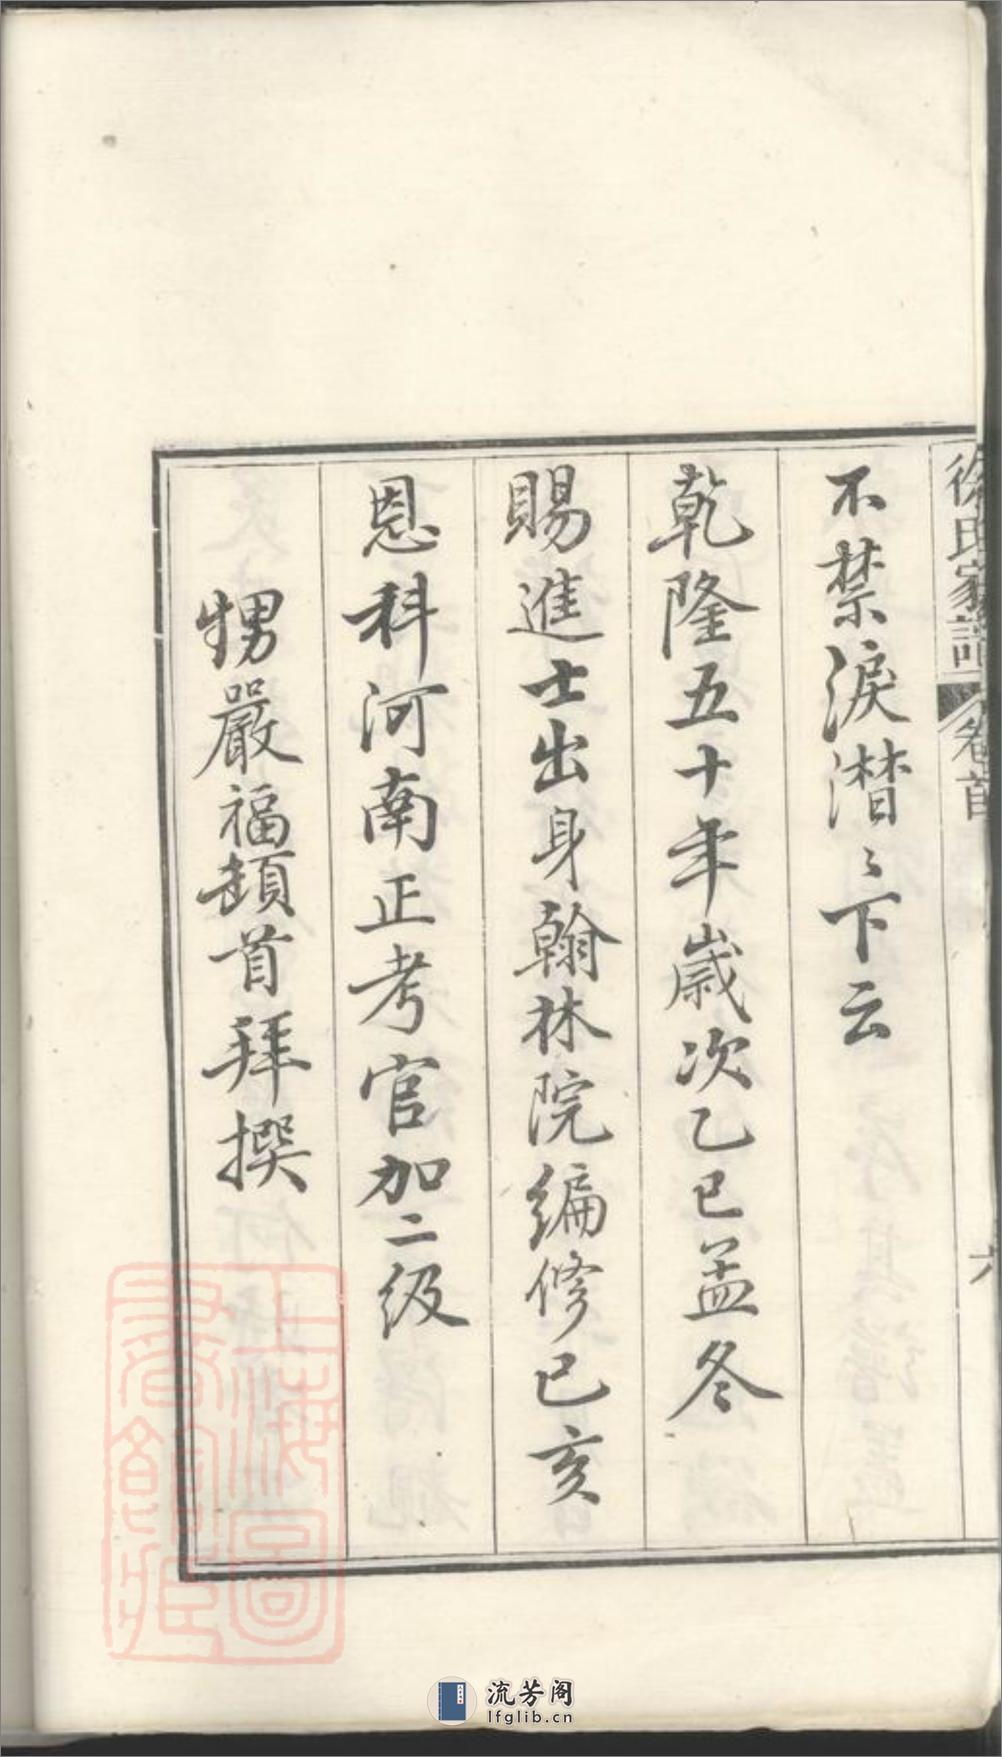 徐氏家譜 卷首 六
不禁淚潸〻下云
乾隆五十年歲次乙巳孟冬
賜進士出身翰林院編修己亥
恩科河南正考官加二級
甥嚴福頓首拜撰
上海圖書館藏
流芳阁
lfglib.cn